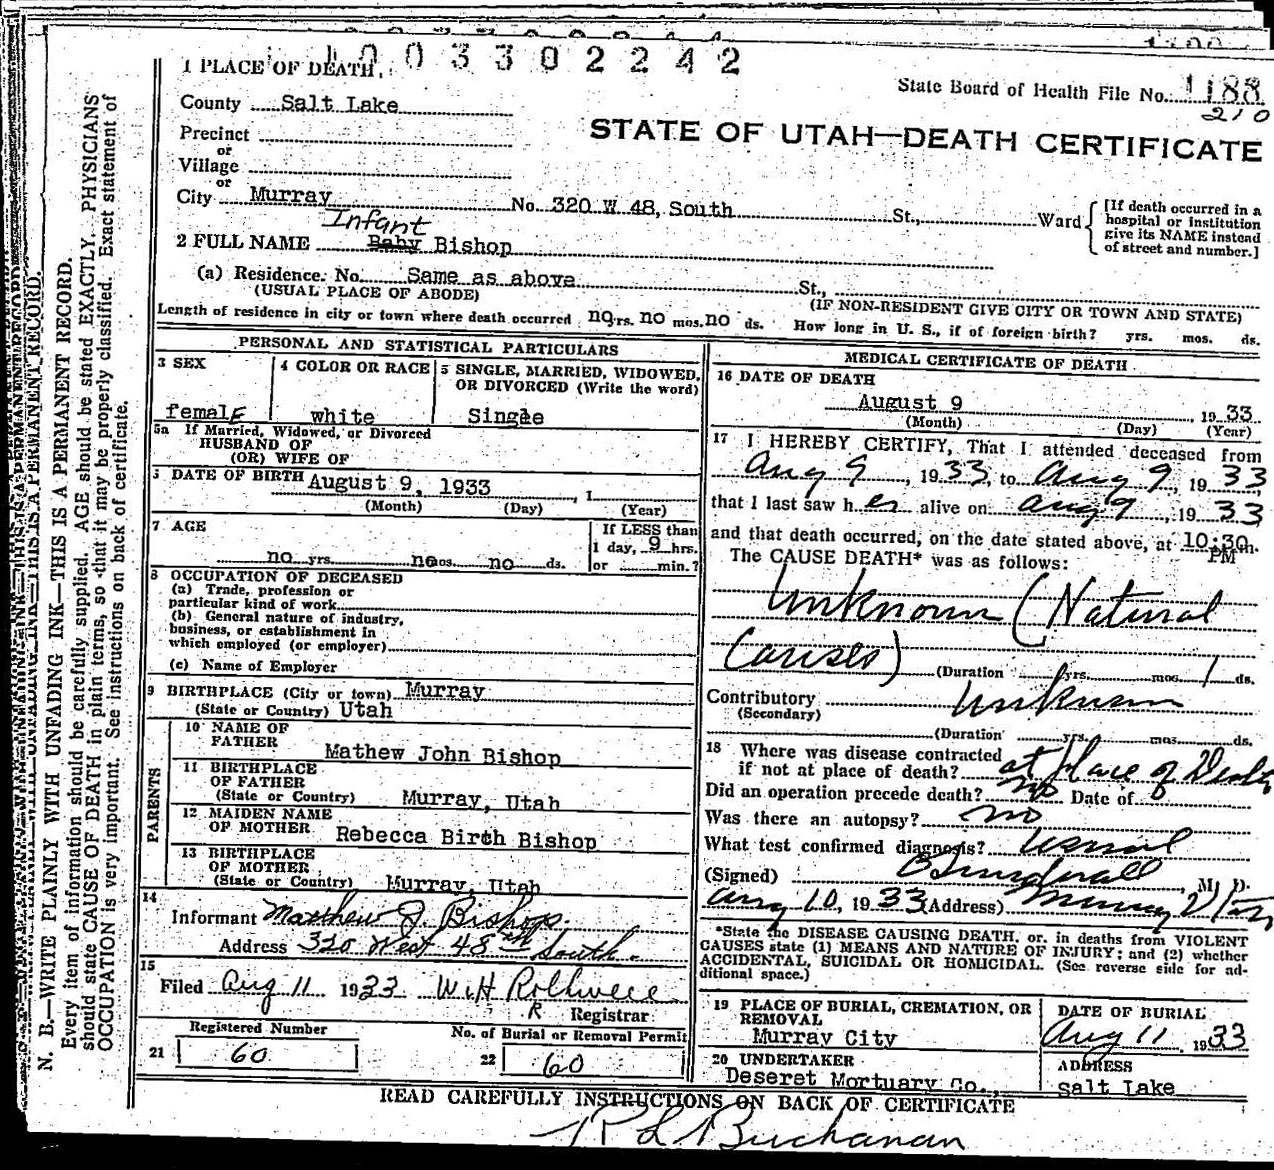 1003302242
1 PLACE OF DEATH
State Board of Health File No. 1188
210
County Salt Lake
STATE OF UTAH—DEATH CERTIFICATE
Precinct
or
Village
or
City Murray No. 320 W 48, South St., Ward
[If death occurred in a
hospital or institution
give its NAME instead
of street and number.]
Infant
2 FULL NAME Baby Bishop
(a) Residence. No. Same as above St.,
(USUAL PLACE OF ABODE) (IF NON-RESIDENT GIVE CITY OR TOWN AND STATE)
Length of residence in city or town where death occurred no yrs. no mos. no ds. How long in U. S., if of foreign birth? yrs. mos. ds.
PERSONAL AND STATISTICAL PARTICULARS
3 SEX
female
4 COLOR OR RACE
white
5 SINGLE, MARRIED, WIDOWED,
OR DIVORCED (Write the word)
Single
5a If Married, Widowed, or Divorced
HUSBAND OF
(OR) WIFE OF
6 DATE OF BIRTH August 9, 1933, 1
(Month) (Day) (Year)
7 AGE
no yrs. no mos. no ds.
If LESS than
1 day, 9 hrs.
or min.?
8 OCCUPATION OF DECEASED
(a) Trade, profession or
particular kind of work
(b) General nature of industry,
business, or establishment in
which employed (or employer)
(c) Name of Employer
9 BIRTHPLACE (City or town) Murray
(State or Country) Utah
PARENTS
10 NAME OF
FATHER Mathew John Bishop
11 BIRTHPLACE
OF FATHER
(State or Country) Murray, Utah
12 MAIDEN NAME
OF MOTHER Rebecca Birch Bishop
13 BIRTHPLACE
OF MOTHER
(State or Country) Murray, Utah
14
Informant Matthew J. Bishop.
Address 320 West 48th South.
15
Filed Aug 11 1933 W H Rothwell
R Registrar
Registered Number
21 60
No. of Burial or Removal Permit
22 60
MEDICAL CERTIFICATE OF DEATH
16 DATE OF DEATH
August 9 1933
(Month) (Day) (Year)
17 I HEREBY CERTIFY, That I attended deceased from
Aug 9, 1933, to Aug 9, 1933
that I last saw her alive on Aug 9, 1933
and that death occurred, on the date stated above, at 10:30 m.
PM
The CAUSE DEATH* was as follows:
Unknown (Natural
Causes)
(Duration yrs. mos. 1 ds.
Contributory Unknown
(Secondary)
(Duration yrs. mos. ds.
18 Where was disease contracted
if not at place of death? at place of Death
Did an operation precede death? no Date of
Was there an autopsy? no
What test confirmed diagnosis? usual
(Signed) M. D.
Aug 10, 1933 (Address) Murray Utah
*State the DISEASE CAUSING DEATH, or, in deaths from VIOLENT
CAUSES state (1) MEANS AND NATURE OF INJURY; and (2) whether
ACCIDENTAL, SUICIDAL OR HOMICIDAL. (See reverse side for ad-
ditional space.)
19 PLACE OF BURIAL, CREMATION, OR
REMOVAL
Murray City
DATE OF BURIAL
Aug 11, 1933
20 UNDERTAKER
Deseret Mortuary Co.,
ADDRESS
Salt Lake
READ CAREFULLY INSTRUCTIONS ON BACK OF CERTIFICATE
R L Buchanan
N. B.—WRITE PLAINLY WITH UNFADING INK—THIS IS A PERMANENT RECORD.
Every item of information should be carefully supplied. AGE should be stated EXACTLY. PHYSICIANS
should state CAUSE OF DEATH in plain terms, so that it may be properly classified. Exact statement of
OCCUPATION is very important. See instructions on back of certificate.